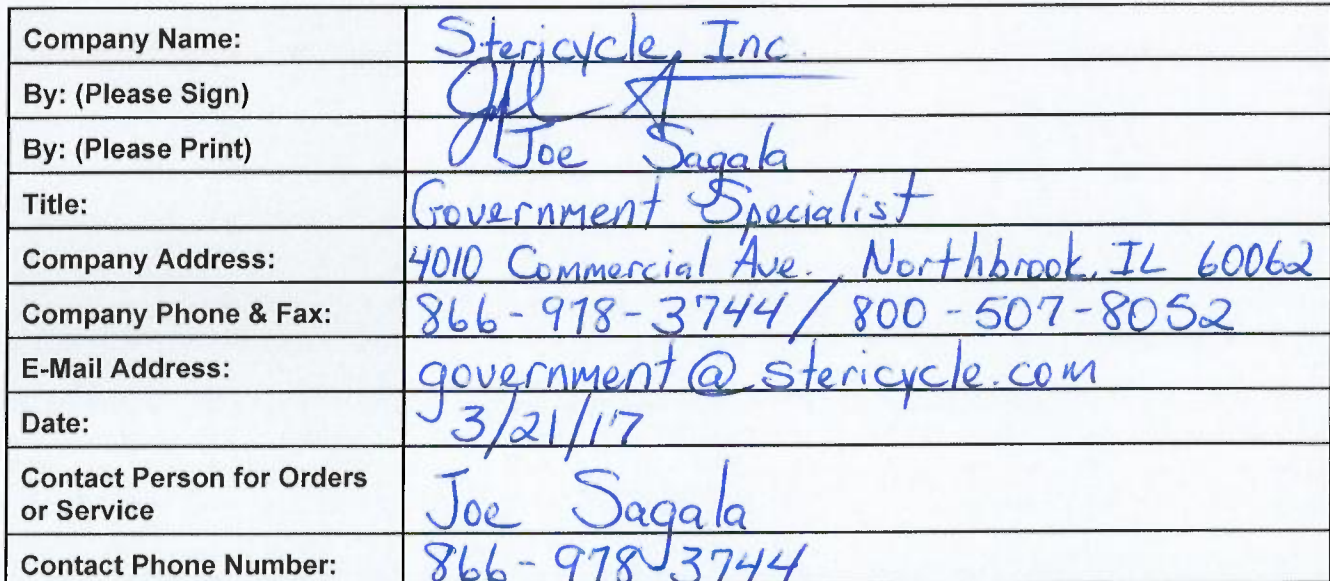 Company Name: Stericycle, Inc.
By: (Please Sign)
By: (Please Print) Joe Sagala
Title: Government Specialist
Company Address: 4010 Commercial Ave. Northbrook, IL 60062
Company Phone & Fax: 866-978-3744 / 800-507-8052
E-Mail Address: government@stericycle.com
Date: 3/21/17
Contact Person for Orders
or Service Joe Sagala
Contact Phone Number: 866-978-3744